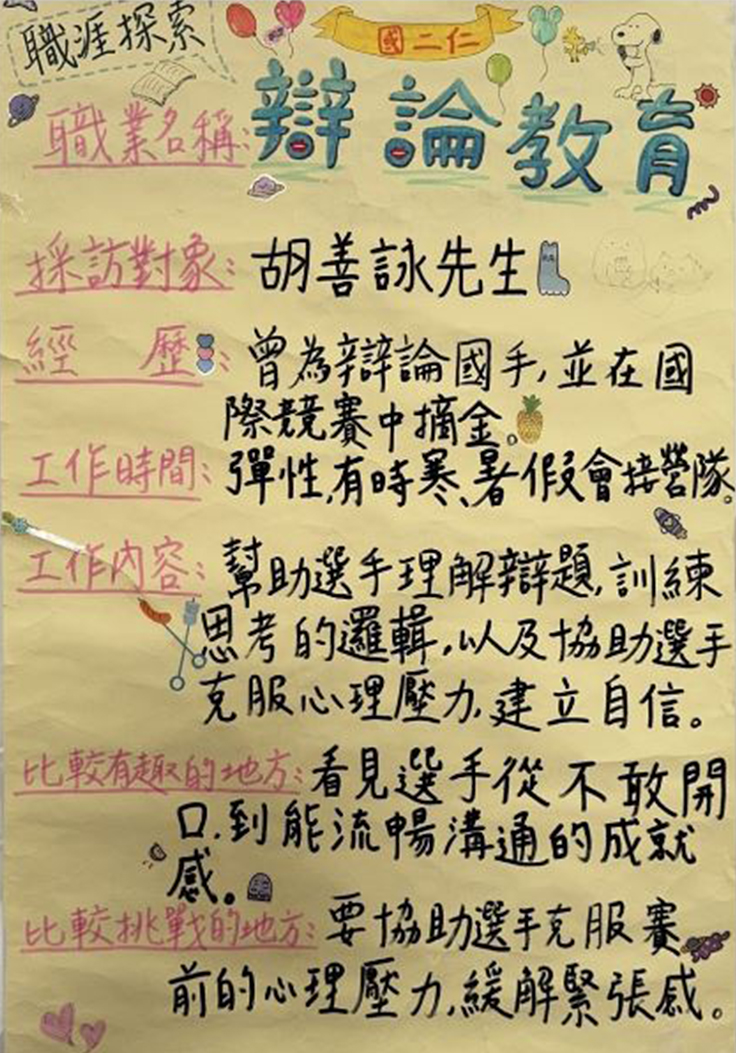 職涯探索
國二仁
職業名稱：辯論教育
採訪對象：胡善詠先生
經歷：曾為辯論國手，並在國
際競賽中摘金。
工作時間：彈性，有時寒、暑假會接營隊。
工作內容：幫助選手理解辯題，訓練
思考的邏輯，以及協助選手
克服心理壓力，建立自信。
比較有趣的地方：看見選手從不敢開
口，到能流暢溝通的成就
感。
比較挑戰的地方：要協助選手克服賽
前的心理壓力，緩解緊張感。